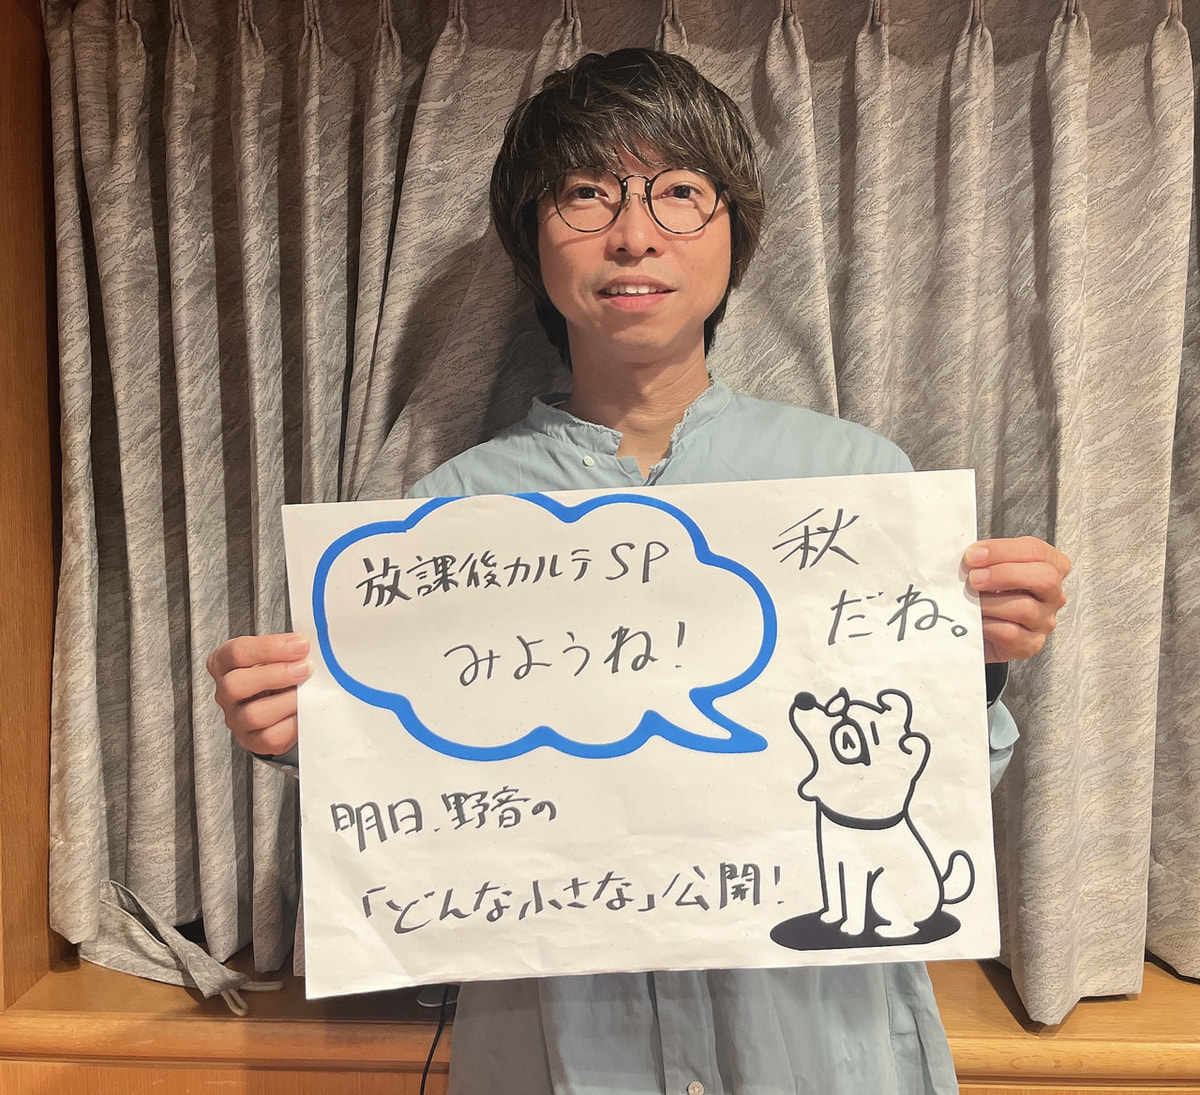 放課後カルテSP
みようね!
秋
だね。
明日、野音の
「どんな小さな」公開!